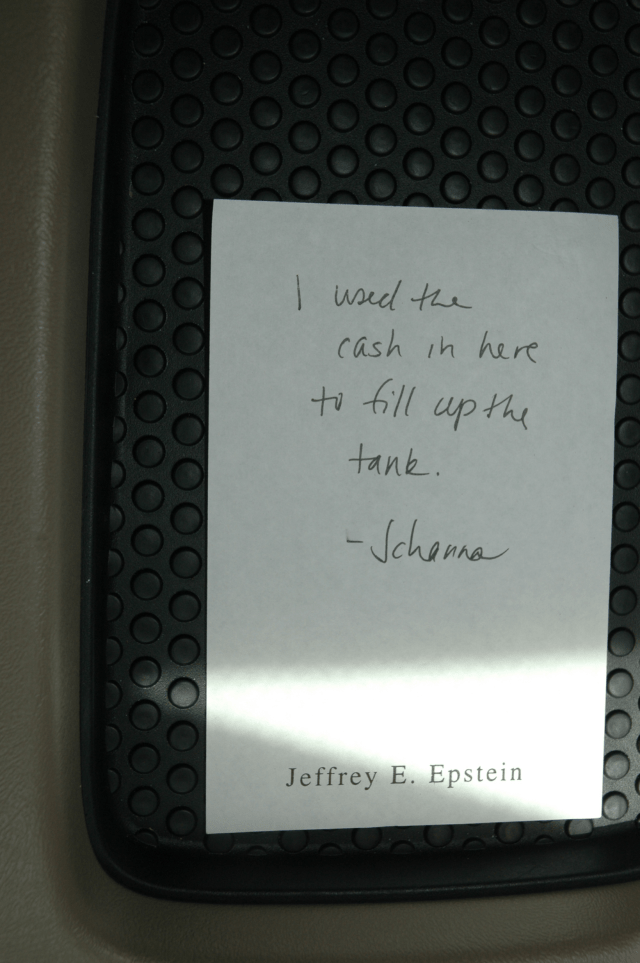 I used the
cash in here
to fill up the
tank.
- Johanna
Jeffrey E. Epstein